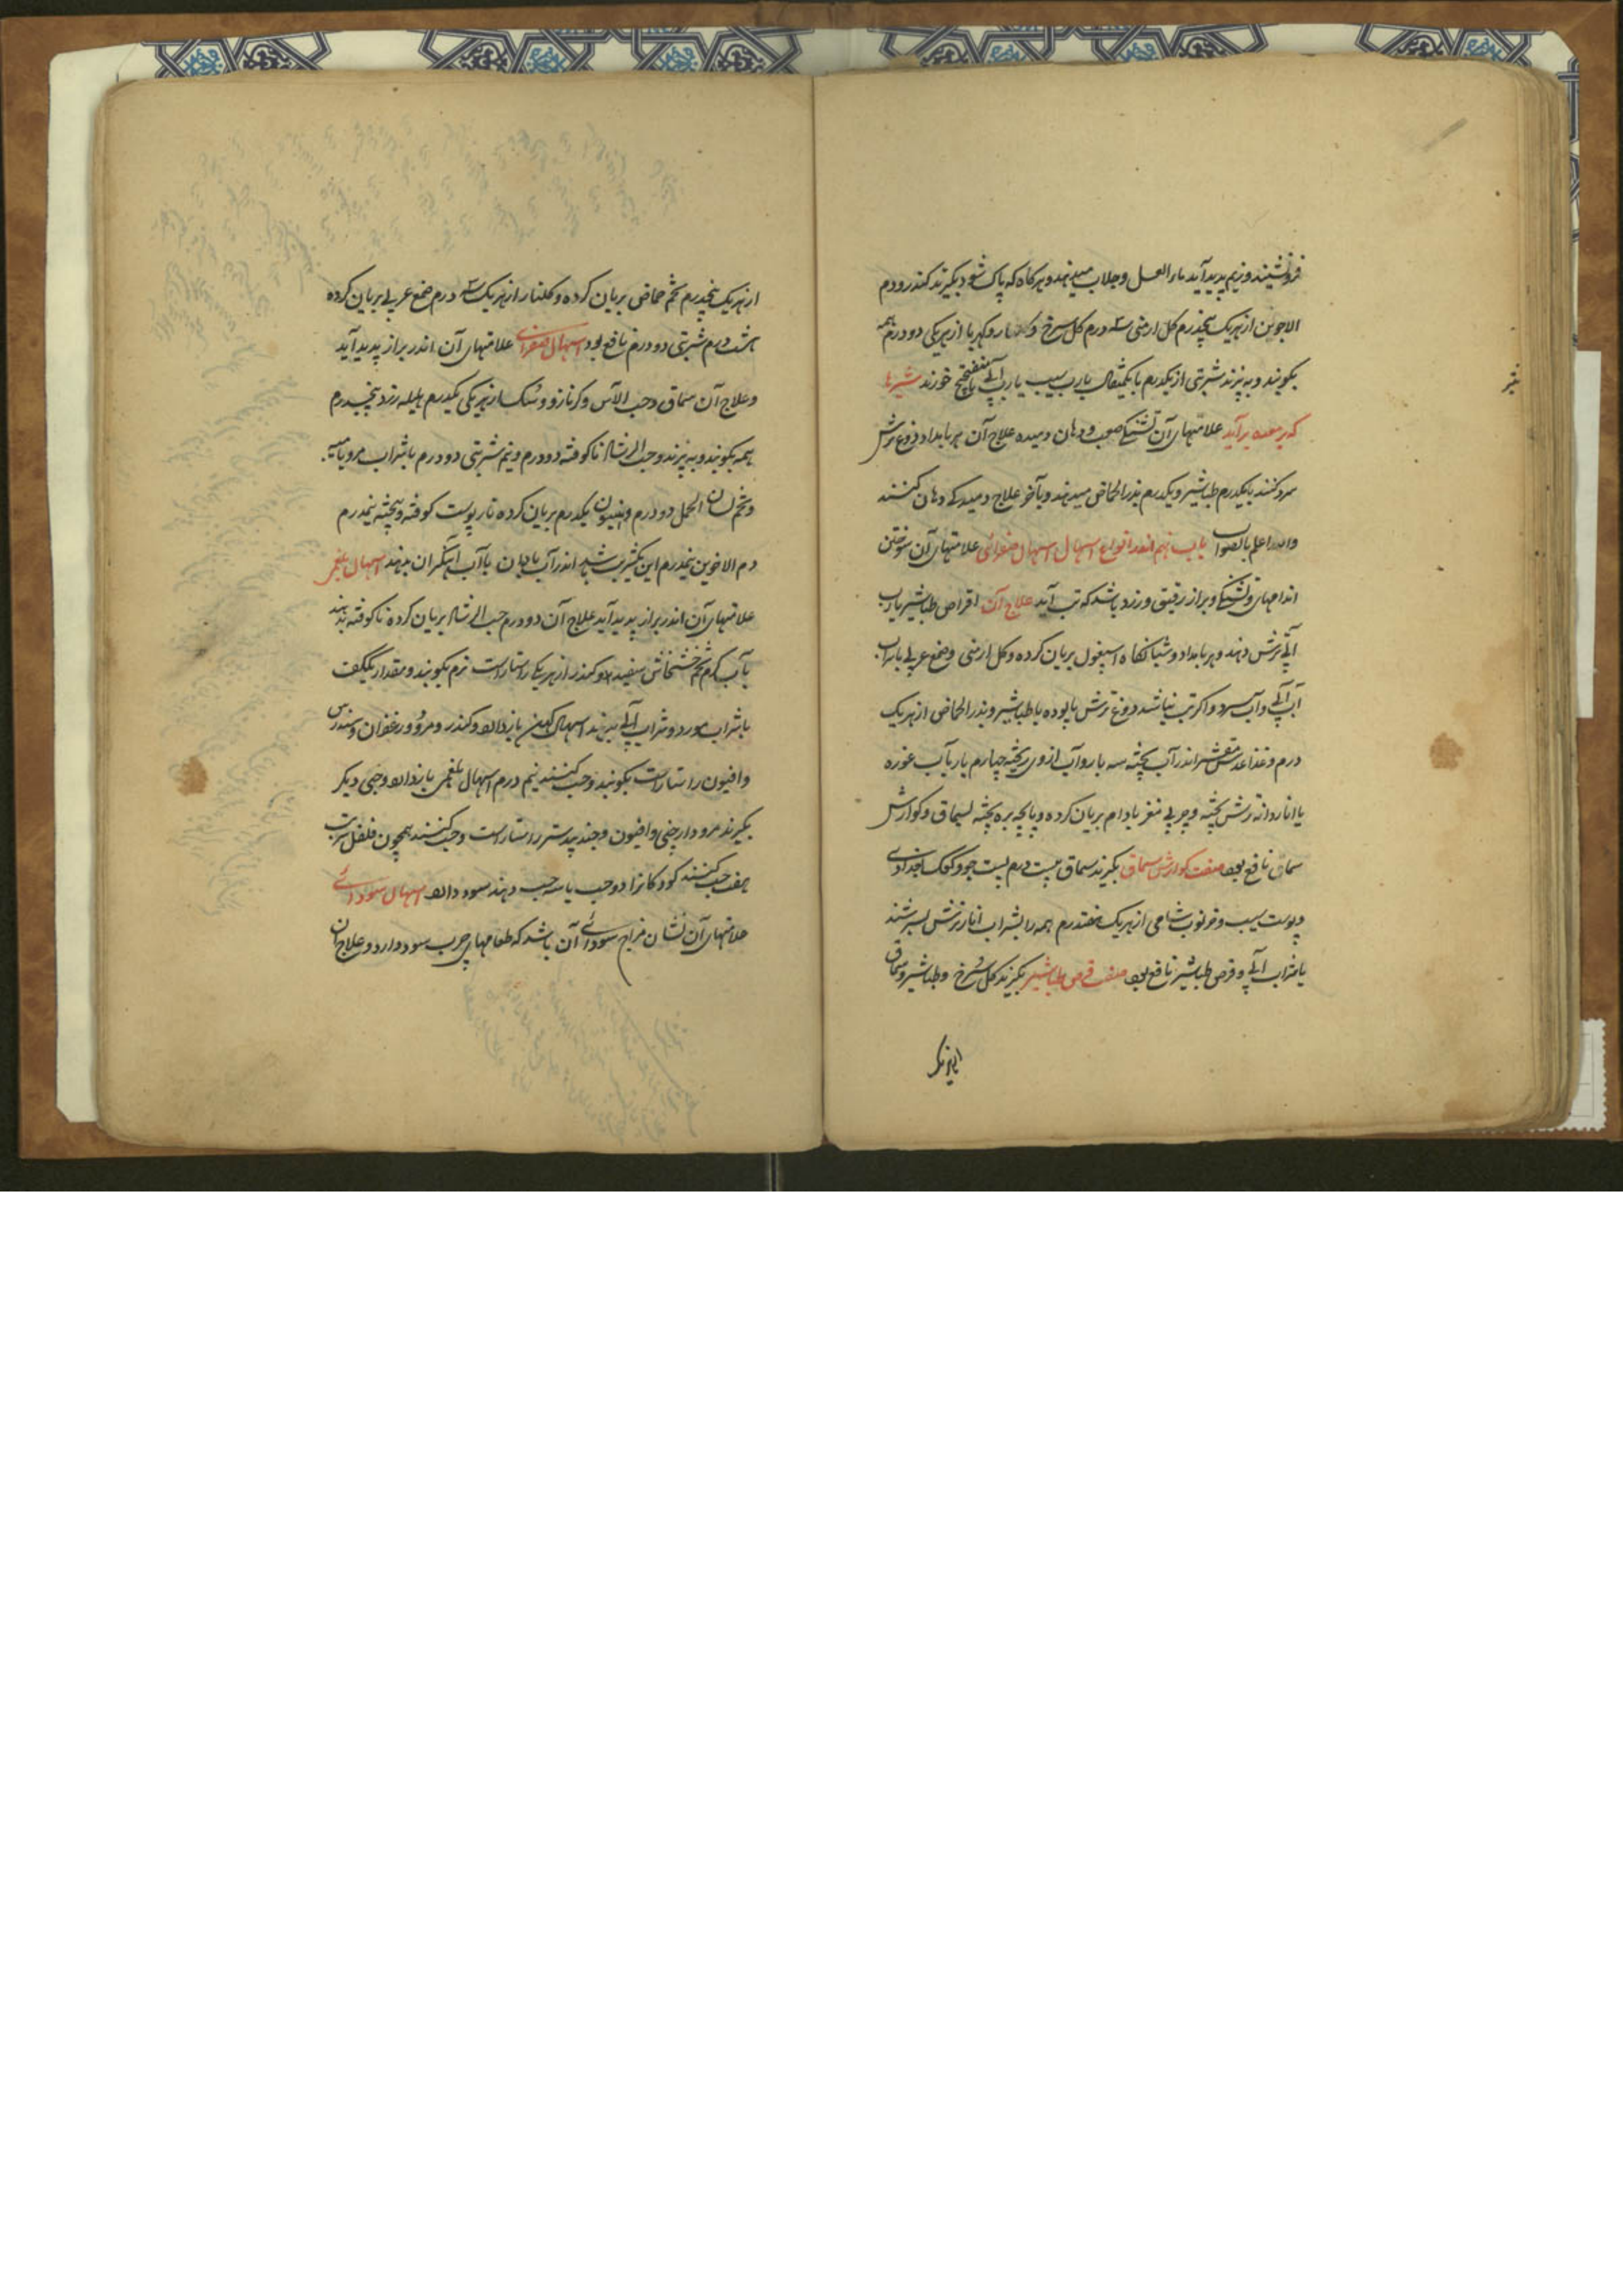 فرونشیند و ریم پدید آید ماء العسل و جلاب میدهند و هرکاه که پاک شود بکیرند کندر و دم
الاخوین از هر یک پنجدرم کل ارمنی سه درم کل سرخ و کلنار و کهربا از هر یکی دو درم همه
بکوبند و به پزند شربتی از یکدرم تا یکمثقال با رب سیب یا رب آبی یا میفختج خورند شیرها
که بر معده برآید علامتهای آن تشنکی صعب و دهان دمیده علاج آن هر بامداد دوغ ترش
سرد کنند با یکدرم طباشیر و یکدرم بذر الحماض میدهند و بآخر علاج دمیدکی دهان کنند
والله اعلم بالصواب باب نهم اندر انواع اسهال اسهال صفرائی علامتهای آن سوختن
اندامهای و تشنکی و براز رقیق و زرد باشد که تب آید علاج آن اقراص طباشیر با رب
آبی ترش دهند و هر بامداد و شبانکاه اسپغول بریان کرده و کل ارمنی و صمغ عربی با شراب
آب آبی و آب سرد و اکر تب نباشد دوغ ترش پالوده با طباشیر و بذر الحماض از هر یک
درم و غذا عدس مقشر اندر آب پخته سه بار و آب از وی ریخته چهارم بار بآب غوره
یا انار دانه ترش پخته و چربی مغز بادام بریان کرده و پاچه بره پخته بسماق و کوارش
سماق نافع بود صفت کوارش سماق بکیرند سماق بیست درم پست جو و کعک بغدادی
و پوست سیب و خرنوب شامی از هر یک هفتدرم همه را بشراب انار ترش بسرشند
با شراب آبی و قرص طباشیر نافع بود صفت قرص طباشیر بکیرند کل سرخ و طباشیر و سماق
از هر یک
از هر یک پنجدرم تخم حماض بریان کرده و کلنار از هر یک سه درم صمغ عربی بریان کرده
هشت درم شربتی دو درم نافع بود اسهال صفرای علامتهای آن اندر براز پدید آید
و علاج آن سماق و حب الآس و کزمازو و سک از هر یکی یکدرم هلیله زرد پنجدرم
همه بکوبند و به پزند و حب الرشاد ناکوفته دو درم و نیم شربتی دو درم با شراب مرو یا میبه
و تخم لسان الحمل دو درم و افیون یکدرم بریان کرده نار پوست کوفته و پخته نیمدرم
دم الاخوین نیمدرم این یکشربت باشد اندر آب بادیان یا آب آهنکران بدهند اسهال بلغمی
علامتهای آن اندر براز پدید آید علاج آن دو درم حب الرشاد بریان کرده ناکوفته بدهند
بآب کرم تخم خشخاش سفید و کندر از هر یکی راستاراست نرم بکوبند و مقدار یک کف
با شراب مورد و شراب آبی میدهند اسهال کهن بازدارد و کندر و مر و زعفران و سندروس
و افیون راستاراست بکوبند و حب کنند نیم درم اسهال بلغمی بازدارد و حبی دیکر
بکیرند مر و دارچینی و افیون و جند بیدستر راستاراست و حب کنند همچون فلفل شربت
هفت حب کنند کودکانرا دو حب یا سه حب دهند سود دارد اسهال سودائی
علامتهای آن نشان مزاج سودائی آن باشد که طعامهای چرب سود دارد و علاج آن